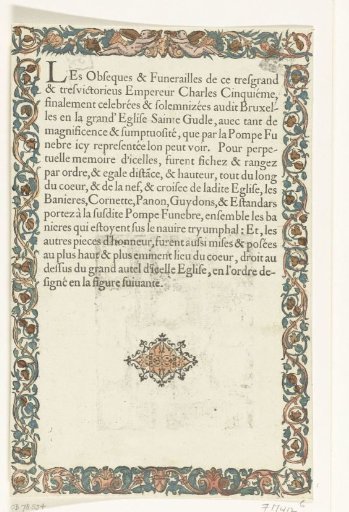 LEs Obseques & Funerailles de ce tresgrand
& tresvictorieus Empereur Charles Cinquiéme,
finalement celebrées & solemnizées audit Bruxel-
les en la grand' Eglise Sainte Gudle, avec tant de
magnificence & sumptuosité, que par la Pompe Fu
nebre icy representée lon peut voir. Pour perpe-
tuelle memoire d'icelles, furent fichez & rangez
par ordre, & egale distāce, & hauteur, tout du long
du coeur, & de la nef, & croisee de ladite Eglise, les
Banieres, Cornette, Panon, Guydons, & Estandars
portez à la susdite Pompe Funebre, ensemble les ba
nieres qui estoyent sus le nauire tryumphal: Et, les
autres pieces d'honneur, furent aussi mises & posées
au plus haut & plus eminent lieu du coeur, droit au
dessus du grand autel d'icelle Eglise, en l'ordre de-
signé en la figure suiuante.